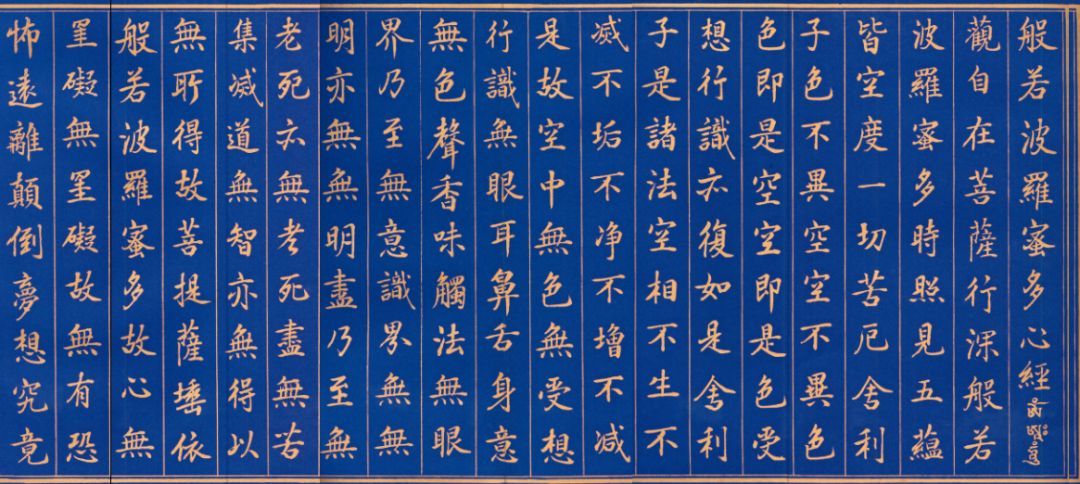 般若波羅蜜多心經
觀自在菩薩行深般若
波羅蜜多時照見五蘊
皆空度一切苦厄舍利
子色不異空空不異色
色即是空空即是色受
想行識亦復如是舍利
子是諸法空相不生不
滅不垢不净不增不减
是故空中無色無受想
行識無眼耳鼻舌身意
無色聲香味觸法無眼
界乃至無意識界無無
明亦無無明盡乃至無
老死亦無老死盡無苦
集滅道無智亦無得以
無所得故菩提薩埵依
般若波羅蜜多故心無
罣礙無罣礙故無有恐
怖遠離顛倒夢想究竟